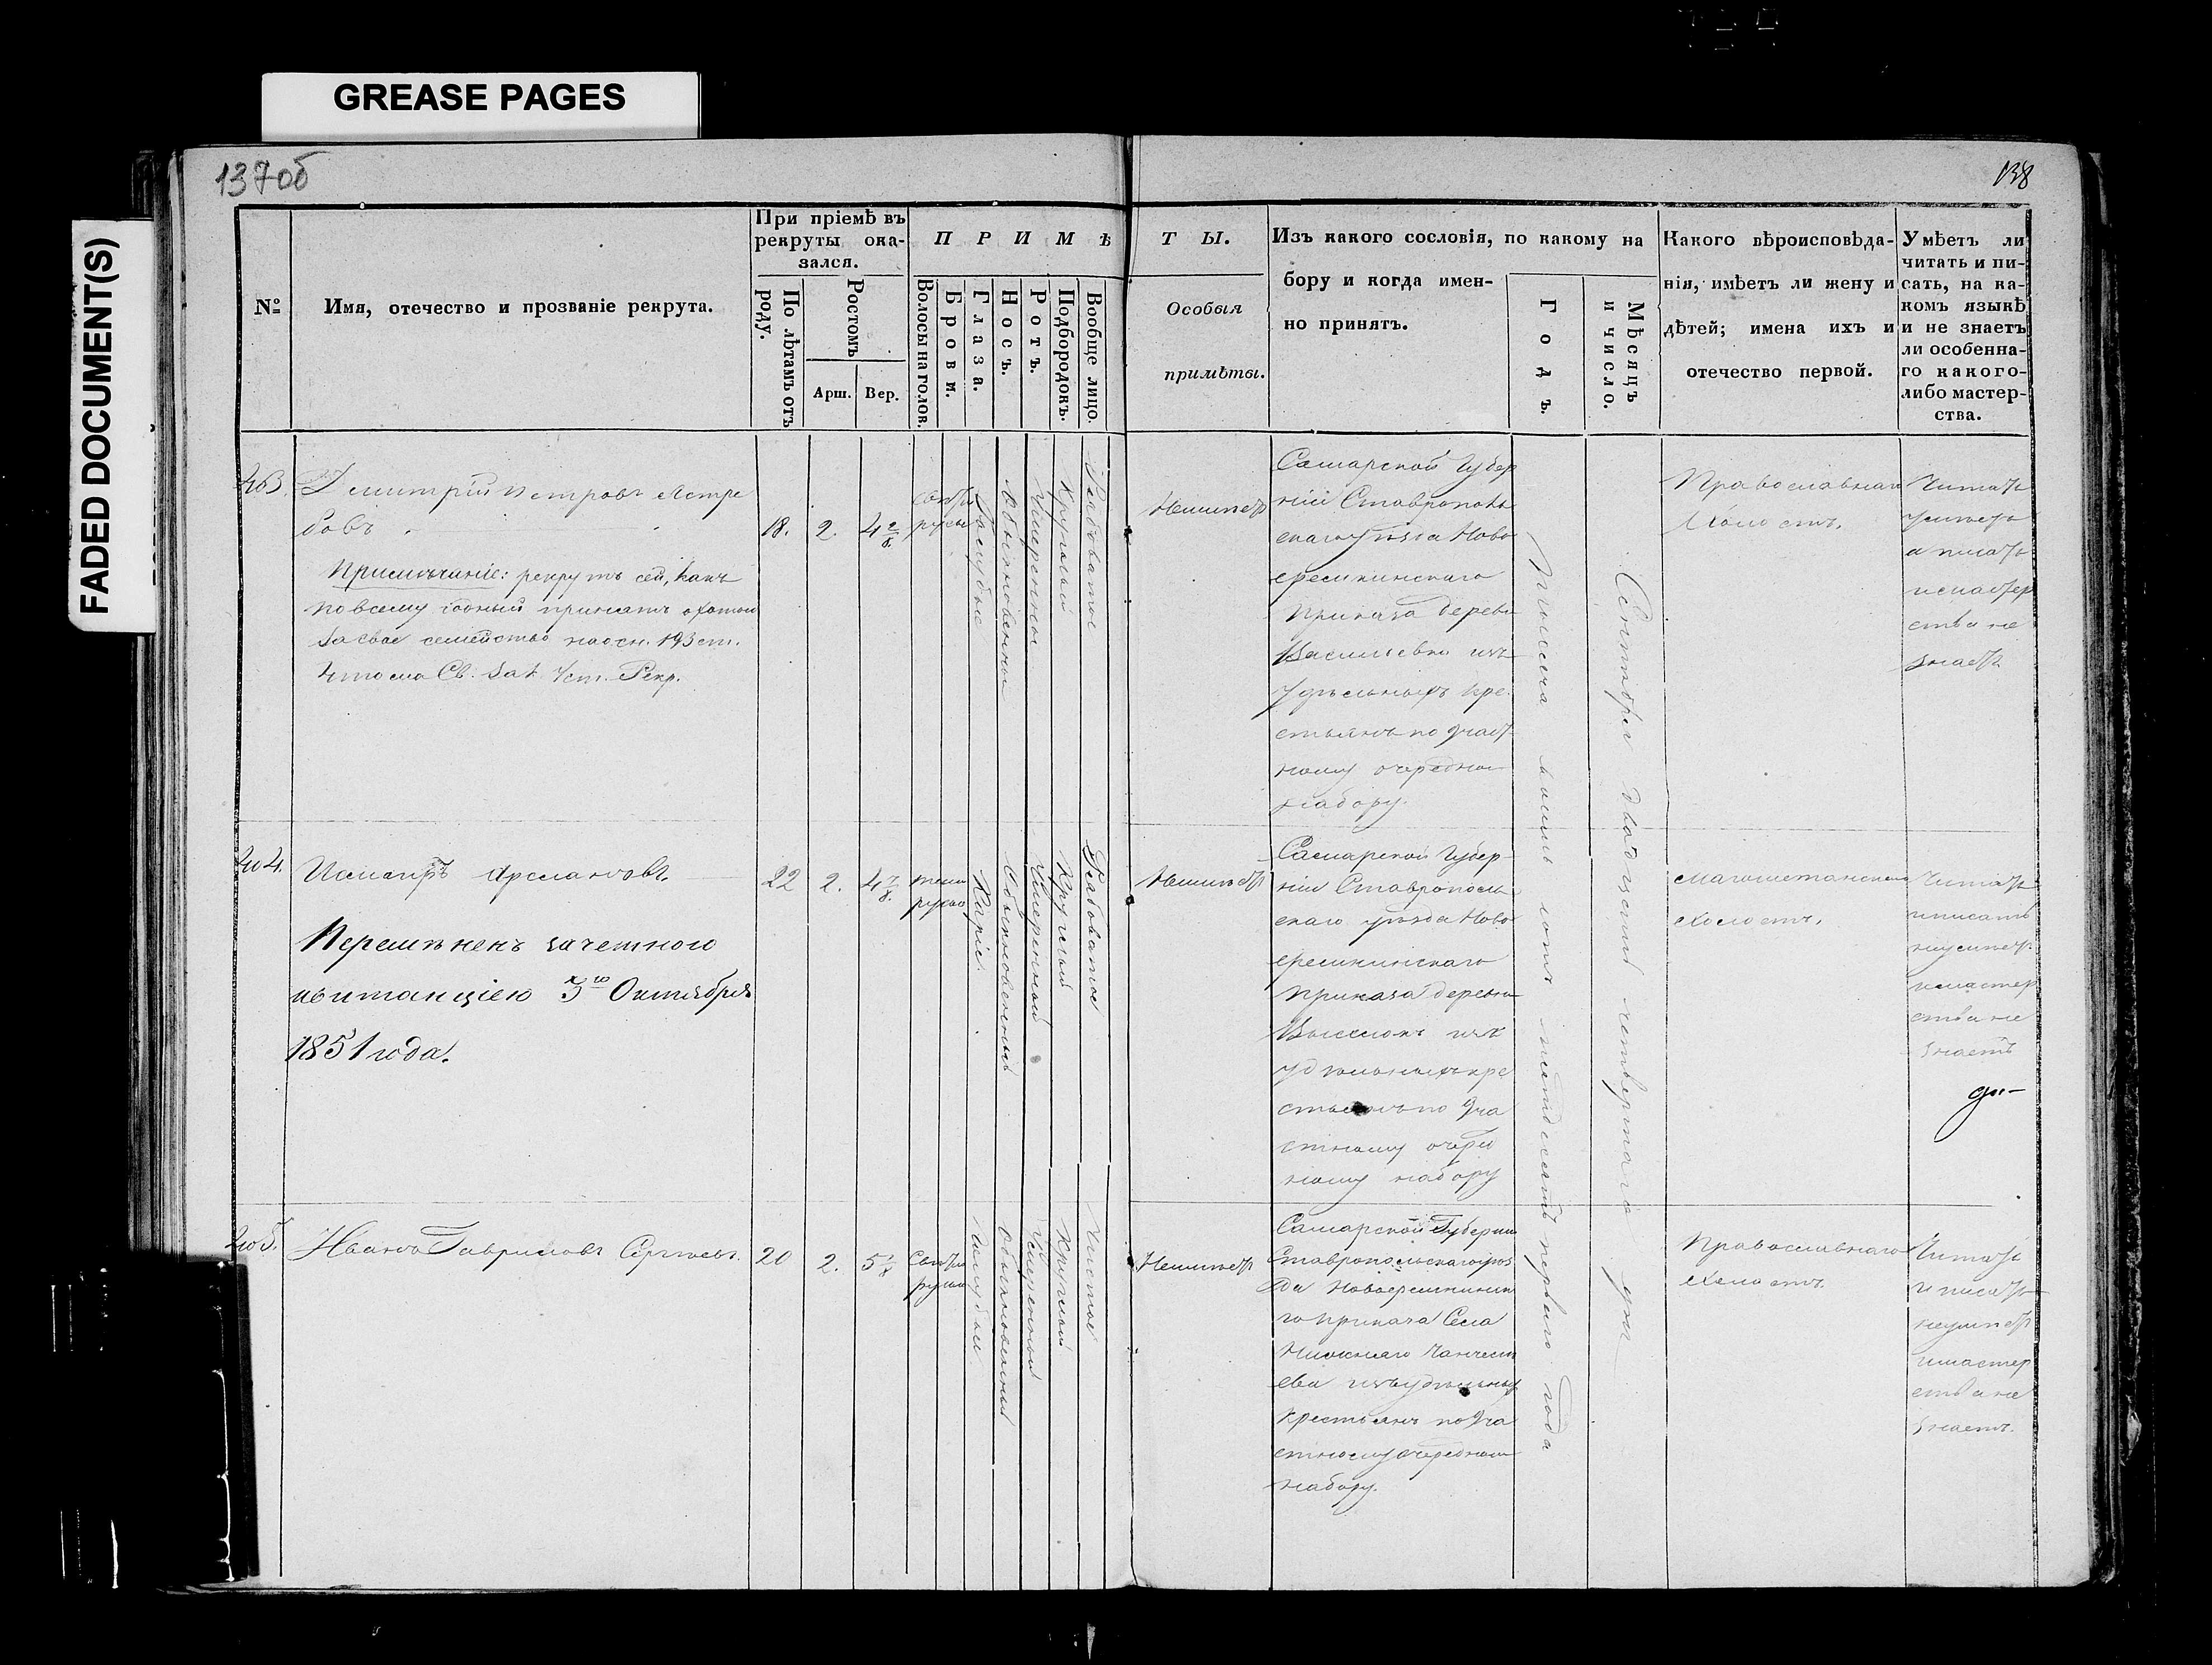 GREASE PAGES
FADED DOCUMENT(S)
137об
138
№
Имя, отечество и прозваніе рекрута.
При пріемѣ въ
рекруты ока-
зался.
По лѣтамъ отъ
роду.
Ростомъ
Арш.
Вер.
ПРИМѢ
Волосы на голов.
Брови.
Глаза.
Носъ.
Ротъ.
Подбородокъ.
Вообще лицо.
ТЫ.
Особыя
примѣты.
Изъ какого сословія, по какому на
бору и когда имен-
но принятъ.
Годъ.
Мѣсяцъ
и число.
Какого вѣроисповѣда-
нія, имѣетъ ли жену и
дѣтей; имена ихъ и
отечество первой.
Умѣетъ ли
читать и пи-
сать, на ка-
комъ языкѣ
и не знаетъ
ли особенна-
го какого-
либо мастер-
ства.
Дмитрій Петровъ Ястре
бовъ
Примѣчаніе: рекрутъ сей, какъ
по всему годный принятъ охотою
за свое семейство на осн. 193 ст.
4 тома Св. Зак. Уст. Рекр.
18.
2.
4 2/8.
свѣтло
русы
Голубые
Обыкновенный
Умеренный
Круглый
Рябоватое
Неимѣетъ
Самарской Губер
ніи Ставрополь
скаго уѣзда Ново
еремкинскаго
приказа деревн
Васильевки изъ
Удѣльныхъ кре
стьянъ по Част
ному очередно
набору.
Тысяча восемь сотъ пятдесятъ перваго года
Сентября двадцать четвертаго дня
Православнаго
Холостъ.
Читать
умѣетъ
а писать
и мастер
ства не
знаетъ
404.
Арслановъ.
Перемѣненъ зачетною
квитанціею 3го Октября
1851 года.
22
2.
4 7/8.
темно
русые
Каріе
Обыкновенный
Умеренный
Круглый
Рябоватое
Неимѣетъ
Самарской Губер
ніи Ставрополь
скаго уѣзда Ново
еремкинскаго
приказа деревни
Выселокъ изъ
удѣльныхъ кре
стьянъ по Ча
стному очеред
ному набору
Магометанскаго
холостъ.
Читать
и писать
неумѣетъ
и мастер
ства не
знаетъ
405.
Иванъ Гавриловъ Сергѣевъ.
20
2.
5 1/8
Свѣтло
русые
Голубые
Обыкновенный
Умеренный
Круглый
Чистое
Неимѣетъ
Самарской Губерніи
Ставропольскаго уѣз
да Новоеремкинска
го приказа Села
Нижняго
ева изъ удѣльныхъ
крестьянъ по Ча
стному очередному
набору.
Православнаго
Холостъ.
Читать
и писать
неумѣетъ
и мастер
ства не
знаетъ.